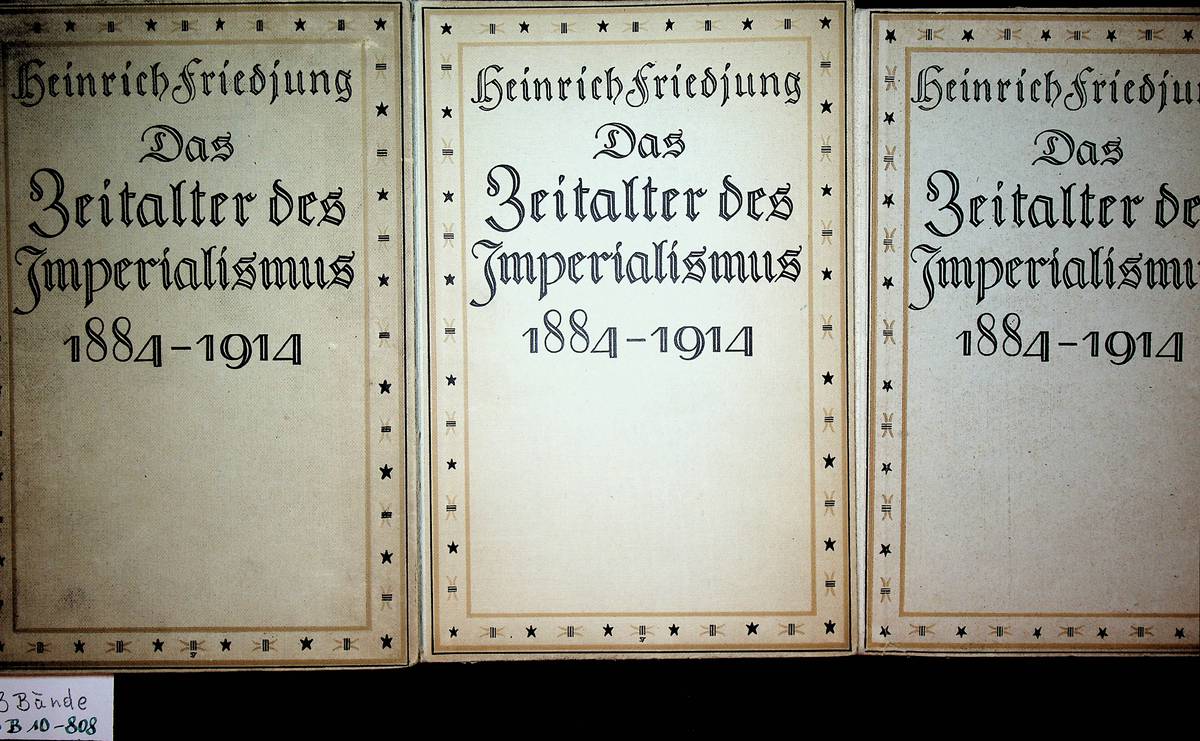 Heinrich Friedjung
Das
Zeitalter des
Imperialismus
1884-1914
Heinrich Friedjung
Das
Zeitalter des
Imperialismus
1884-1914
Heinrich Friedju
Das
Zeitalter de
Imperialismu
1884-1914
3 Bände
B 10-808